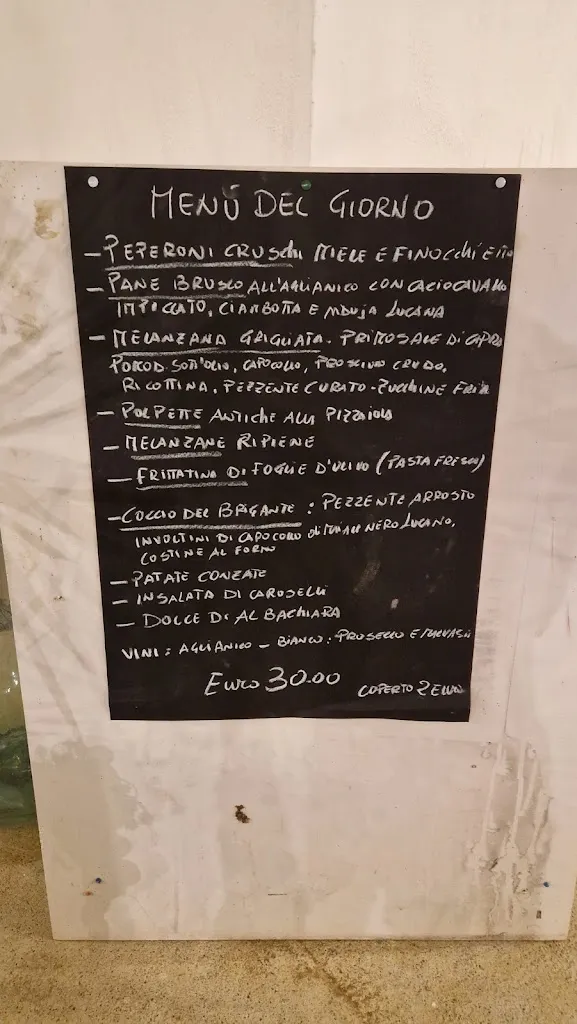 MENÙ DEL GIORNO
- PEPERONI CRUSCHI MIELE E FINOCCHIETTO
- PANE BRUSCO ALL'AGLIANICO CON CACIOCAVALLO
IMPICCATO, CIAMBOTTA E NDUJA LUCANA
- MELANZANA GRIGLIATA. PRIMOSALE DI CAPRA
SOTT'OLIO, CAPOCOLLO, PROSCIUTTO CRUDO,
RICOTTINA, PEZZENTE CURATO - ZUCCHINE
- POLPETTE ANTICHE ALLA PIZZAIOLA
- MELANZANE RIPIENE
- FRITTATINA DI FOGLIE D'ULIVO (PASTA FRESCA)
- COCCIO DEL BRIGANTE : PEZZENTE ARROSTO
INVOLTINI DI CAPOCOLLO di MAIALE NERO LUCANO,
COSTINE AL FORNO
- PATATE CONZATE
- INSALATA DI CAROSELLI
- DOLCE DI AL BACHIARA
VINI : AGLIANICO - BIANCO : PROSECCO E MALVASIA
Euro 30.00 COPERTO 2 EURO